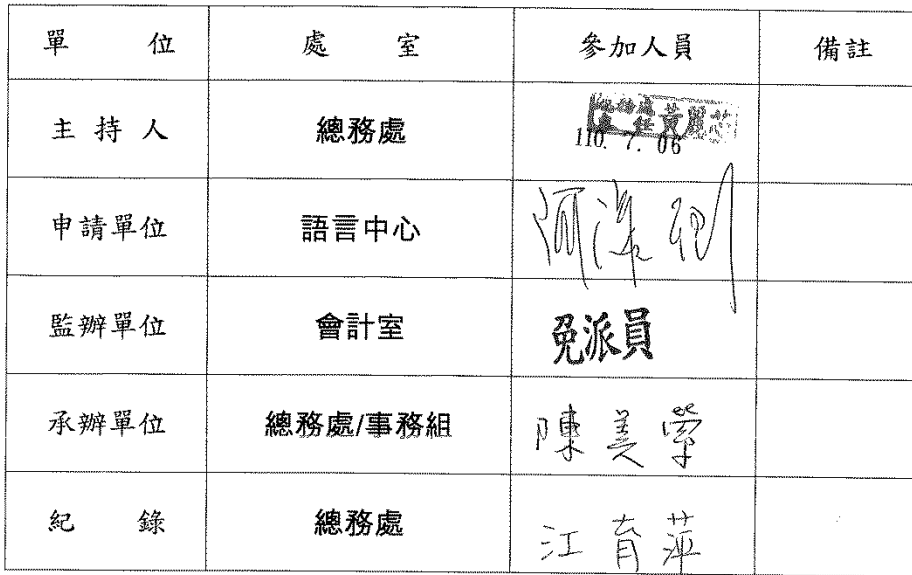 單 位 處 室 參加人員 備註
主 持 人 總務處 總務處 主任 黃麗芯
110. 7. 06
申請單位 語言中心
監辦單位 會計室 免派員
承辦單位 總務處/事務組 陳美
紀 錄 總務處 江育萍